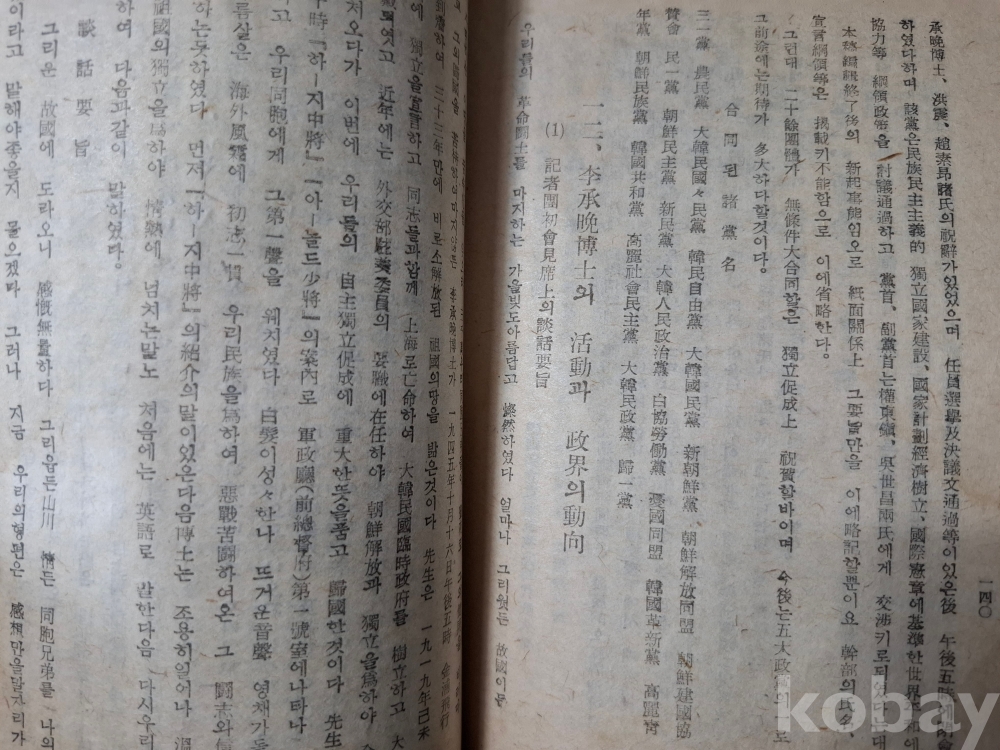 承晩博士、洪震、趙素昂諸氏의祝辭가있었으며 任員選擧及決議文通過等이있은後 午後五時
하였다하며 該黨은民族民主主義的 獨立國家建設、國家計劃經濟樹立、國際憲章에基準한世界平和
協力等 綱領政策을 討議通過하고 黨首、副黨首는權東鎭、吳世昌兩氏에게 交涉키로되였다는대
本稿編輯終了後의 新起事態임으로 紙面關係上 그要旨만을 이에略記할뿐이요 幹部의氏名、
宣言綱領等은 揭載키不能함으로 이에省略한다。
그런대 二十餘團體가 無條件大合同함은 獨立促成上 祝賀할바이며 今後는五大政黨으로
그前途에는期待가 多大하다할것이다。
合同된諸黨名
三一黨 農民黨 大韓民國々民黨 韓民自由黨 大韓國民黨 新朝鮮黨、朝鮮解放同盟 朝鮮建國協
贊會 民一黨 朝鮮民主黨 新民黨 大韓人民政治黨 自協勞働黨 憂國同盟 韓國革新黨 高麗靑
年黨 朝鮮民族黨 韓國共和黨 高麗社會民主黨 大韓民政黨 歸一黨
一二、李承晩博士의 活動과 政界의動向
(1) 記者團初會見席上의談話要旨
우리들의 革命鬪士를 마지하는 가을빛도아름답고 燦然하였다 얼마나 그리웟든 故國이든
李承晩博士가 一九四五年十月十六日午後五時
到着하여 三十三年만에 비로소解放된 祖國의땅을 밟은것이다 先生은 一九一九年己未
에 獨立을宣言하고 同志들과함께 上海로亡命하여 大韓民國臨時政府를 樹立하고 大
裁되엿고 近年에는 外交部駐美委員의 要職에在任하야 朝鮮解放과 獨立을爲하야
저오다가 이번에 우리들의 自主獨立促成에 重大한뜻을품고 歸國한것이다 先生
十時「하ー지中將」「아ー놀드少將」의案內로 軍政廳(前總督府)第一號室에나타나
고 우리同胞에게 그第一聲을 웨치였다 白髮이성々한나 뜨거운音聲 영채가든
름살은 海外風霜에 初志一貫 우리民族을爲하여 惡戰苦鬪하여온 그 鬪志와
하는듯하였다 먼저「하ー지中將」의紹介의말이있은다음博士는 조용히일어나 溫
祖國의獨立을爲하야 情熱에 넘치는말노 처음에는 英語로 말한다음 다시우리
하여 다음과같이 말하였다。
談話要旨
그리운 故國에 도라오니 感慨無量하다 그리웁든山川 情든 同胞兄弟를 나의
이라고 말해야좋을지 몰으겠다 그러나 지금 우리의형편은 感想만을말할자리가
一四〇
kobay